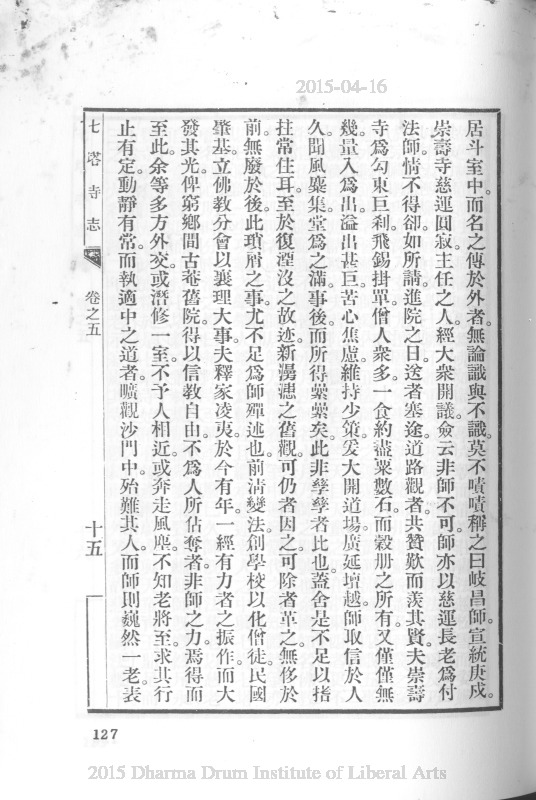 2015-04-16
居斗室中。而名之傳於外者。無論識與不識。莫不嘖嘖稱之曰岐昌師。宣統庚戌。
崇壽寺慈運圓寂。主任之人。經大衆開議。僉云非師不可。師亦以慈運長老爲付
法師。情不得卻。如所請。進院之日。送者塞途。道路觀者。共贊歎而羨其賢。夫崇壽
寺爲勾東巨刹。飛錫掛單。僧人衆多。一食約盡粟數石。而穀册之所有。又僅僅無
幾。量入爲出。溢出甚巨。苦心焦慮。維持少策。爰大開道場。廣延壇越。師取信於人
久。聞風麕集。堂爲之滿。事後。而所得纍纍矣。此非孳孳者比也。蓋舍是不足以揩
拄常住耳。至於復湮沒之故迹。新漫漶之舊觀。可仍者因之。可除者革之。無侈於
前。無廢於後。此瑣屑之事。尤不足爲師殫述也。前淸變法。創學校以化僧徒。民國
肇基。立佛教分會以襄理大事。夫釋家凌夷。於今有年。一經有力者之振作。而大
發其光。俾窮鄕間古菴舊院。得以信教自由。不爲人所佔奪者。非師之力。焉得而
至此。余等多方外交。或潛修一室。不予人相近。或奔走風塵。不知老將至。求其行
止有定。動靜有常。而執適中之道者。曠觀沙門中。殆難其人。而師則巍然一老。表
七塔寺志
卷之五
十五
127
2015 Dharma Drum Institute of Liberal Arts